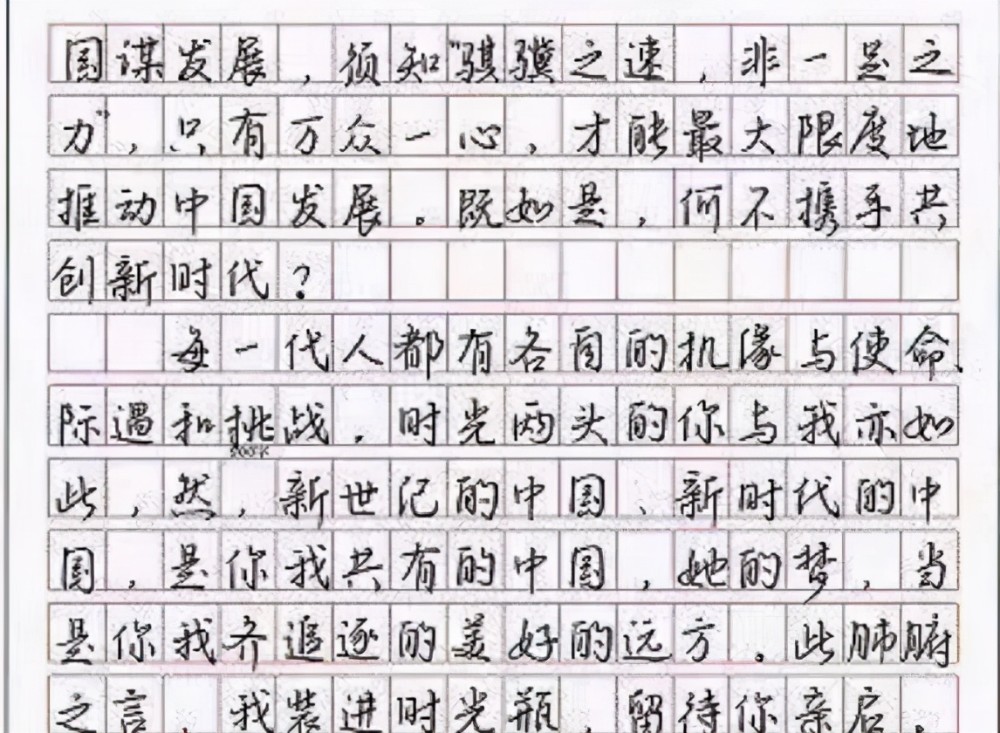 国谋发展，须知“骐骥之速，非一足之
力”，只有万众一心，才能最大限度地
推动中国发展。既如是，何不携手共
创新时代？
每一代人都有各自的机缘与使命、
际遇和挑战。时光两头的你与我亦如
800字
此，然，新世纪的中国、新时代的中
国，是你我共有的中国，她的梦，当
是你我齐追逐的美好的远方。此肺腑
之言，我装进时光瓶，留待你亲启。